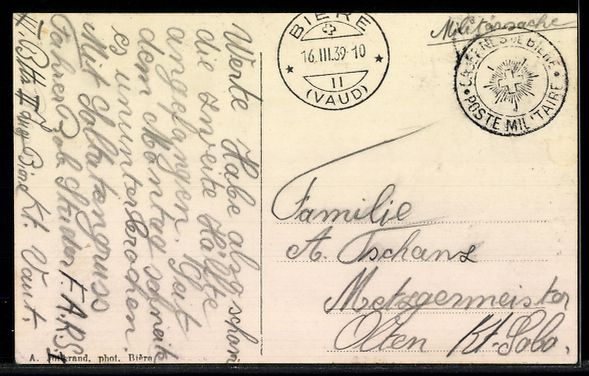 Militärsache
BIÈRE
16.III.39-10
11
(VAUD)
CASERNES DE BIÈRE
POSTE MILITAIRE
Familie
A. Tschanz
Metzgermeister
Olten Kt. Solo.
Werte Habe also schon
die zweite Hälfte
angefangen. Seit
dem Montag schneit
es ununterbrochen.
Mit Soldatengruss
Fahrer Rob. F.A.RS I
III. Bttr Bière Kt. Vaut.
phot. Bière